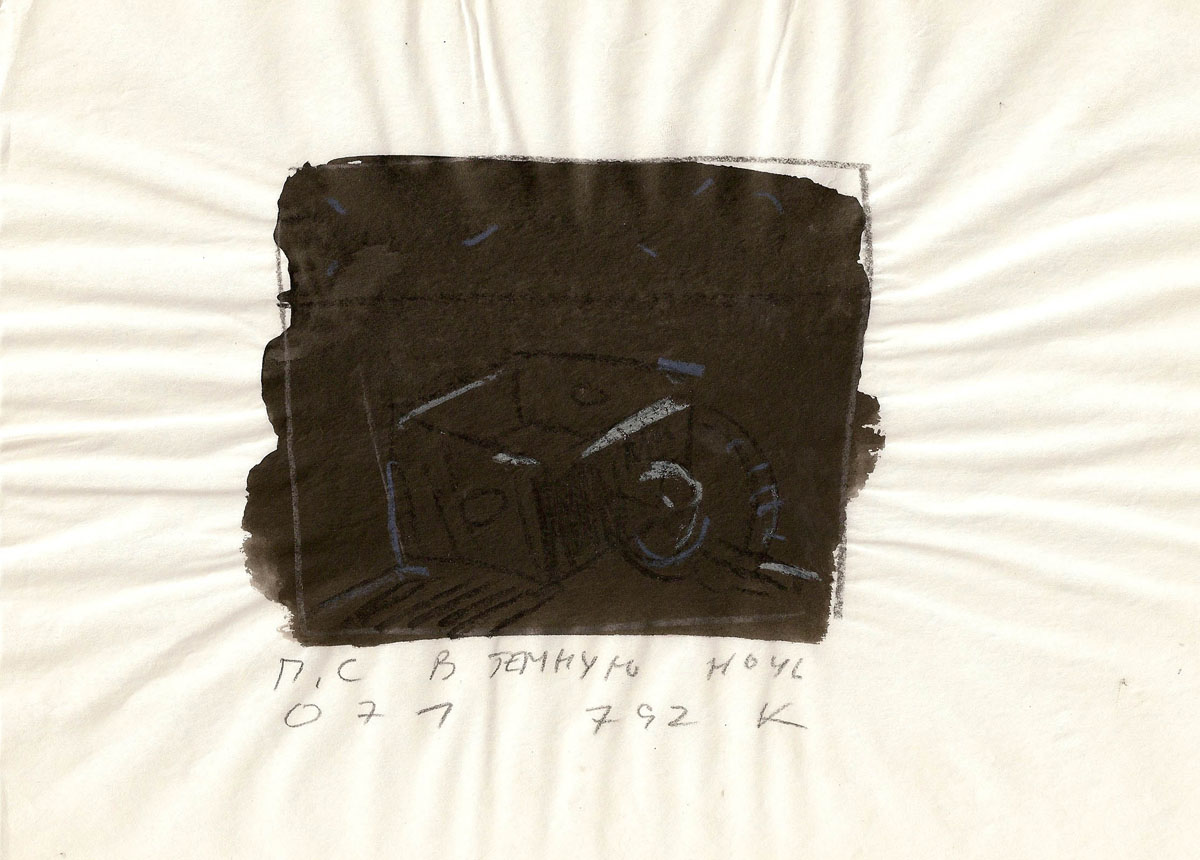 П.С В ТЕМНУЮ НОЧЬ
071 792 К